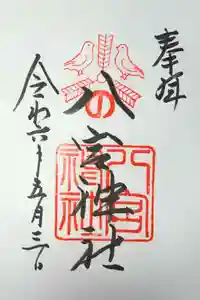 奉拝
八宮神社
八宮神社
令和六年五月三日